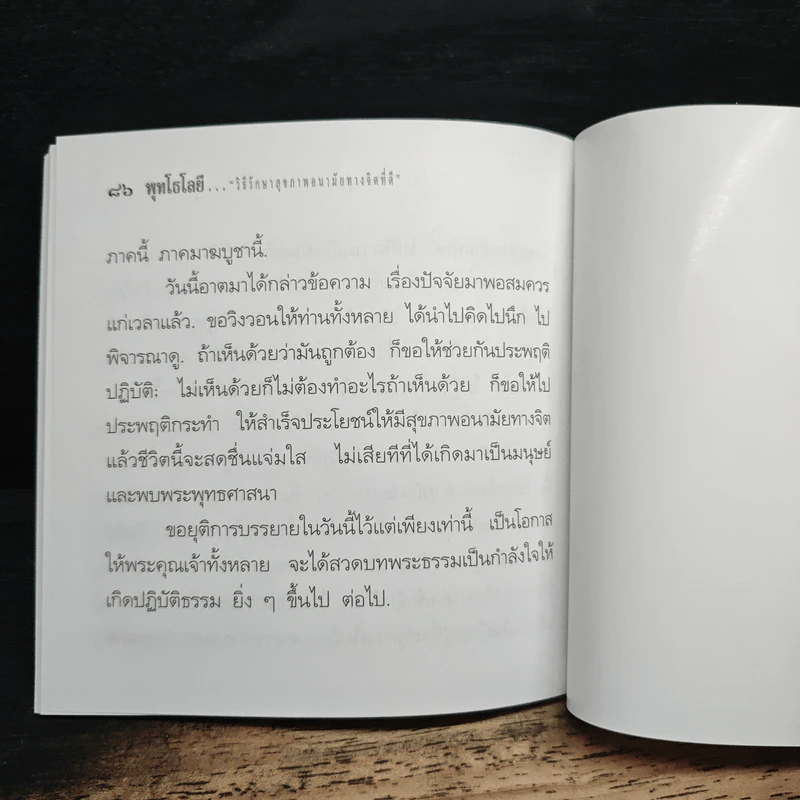 ๘๖ พุทโธโลยี... "วิธีรักษาสุขภาพอนามัยทางจิตที่ดี"
ภาคนี้ ภาคมาฆบูชานี้.
วันนี้อาตมาได้กล่าวข้อความ เรื่องปัจจัยมาพอสมควร
แก่เวลาแล้ว. ขอวิงวอนให้ท่านทั้งหลาย ได้นำไปคิดไปนึก ไป
พิจารณาดู. ถ้าเห็นด้วยว่ามันถูกต้อง ก็ขอให้ช่วยกันประพฤติ
ปฏิบัติ; ไม่เห็นด้วยก็ไม่ต้องทำอะไรถ้าเห็นด้วย ก็ขอให้ไป
ประพฤติกระทำ ให้สำเร็จประโยชน์ให้มีสุขภาพอนามัยทางจิต
แล้วชีวิตนี้จะสดชื่นแจ่มใส ไม่เสียทีที่ได้เกิดมาเป็นมนุษย์
และพบพระพุทธศาสนา
ขอยุติการบรรยายในวันนี้ไว้แต่เพียงเท่านี้ เป็นโอกาส
ให้พระคุณเจ้าทั้งหลาย จะได้สวดบทพระธรรมเป็นกำลังใจให้
เกิดปฏิบัติธรรม ยิ่ง ๆ ขึ้นไป ต่อไป.